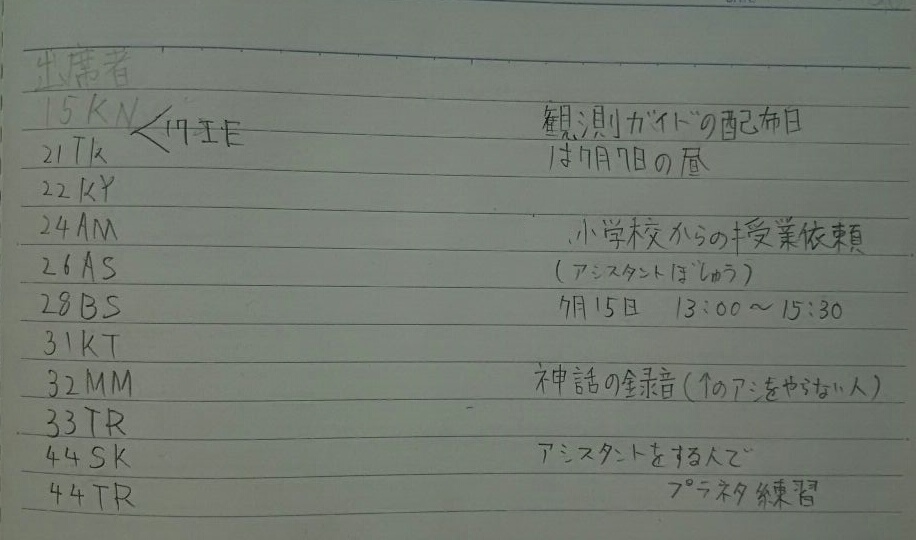 出席者
15KN
17IE
21TK
22KY
24AM
26AS
28BS
31KT
32MM
33TR
44SK
44TR
観測ガイドの配布日
は7月7日の昼
小学校からの授業依頼
(アシスタントぼしゅう)
7月15日 13:00～15:30
神話の録音(↑のアシをやらない人)
アシスタントをする人で
プラネタ練習